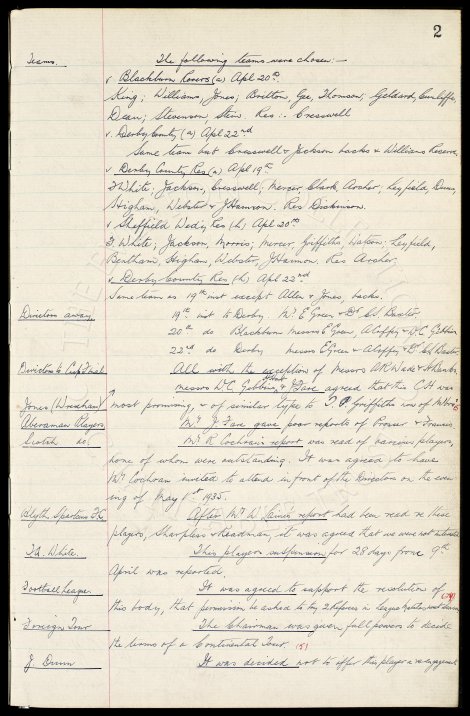 2
Teams. The following teams were chosen:-
v Blackburn Rovers (a) Apl 20th.
King; Williams, Jones; Britton, Gee, Thomson; Geldard, Cunliffe,
Dean; Stevenson, Stein. Res:- Cresswell
v. Derby County (a) Apl 22nd
Same team but Cresswell & Jackson backs & Williams Reserve.
v. Derby County Res (a) Apl 19th.
F. White; Jackson, Cresswell; Mercer, Clark, Archer; Leyfield, Dunn,
Higham, Webster & J Hannon. Res Dickinson.
v Sheffield Wedy Res (h) Apl 20th
F. White; Jackson, Morris; Mercer, Griffiths, Watson; Leyfield,
Bentham, Higham, Webster, J Hannon. Res Archer.
v. Derby County Res (h) Apl 22nd
Same team as 19th inst except Allen & Jones, backs.
Directors away. 19th inst to Derby. Mr E Green & Dr Baxter.
20th do Blackburn messrs E Green, & W C Gibbins
22nd do Derby messrs E Green & Dr Baxter.
Directors to Cup Final All with the exception of Messrs A R Wade &
messrs W C Gibbins, & J Fare agreed that this C H was
Jones (Wrexham) most promising, & of similar type to T. P. Griffiths now of
Aberaman Players Mr J Fare gave poor reports of Prosser & Francis
Scotch do. Mr R Cochran's report was read of various players,
none of whom were outstanding. It was agreed to have
Mr Cochran invited to attend in front of the Directors on the even-
ing of May 1st 1935.
Blyth Spartans FC After Mr W report had been read re these
players, Sharpless & Headman, it was agreed that we were not interested
F.R. White. This players suspension for 28 days from 9th
April was reported
Football League. It was agreed to support the resolution of
this body, that permission be asked to try 2 Referees in League next season
Foreign Tour The Chairman was given full powers to decide
the terms of a Continental Tour.
J. Dunn It was decided not to offer this player a re-engagement